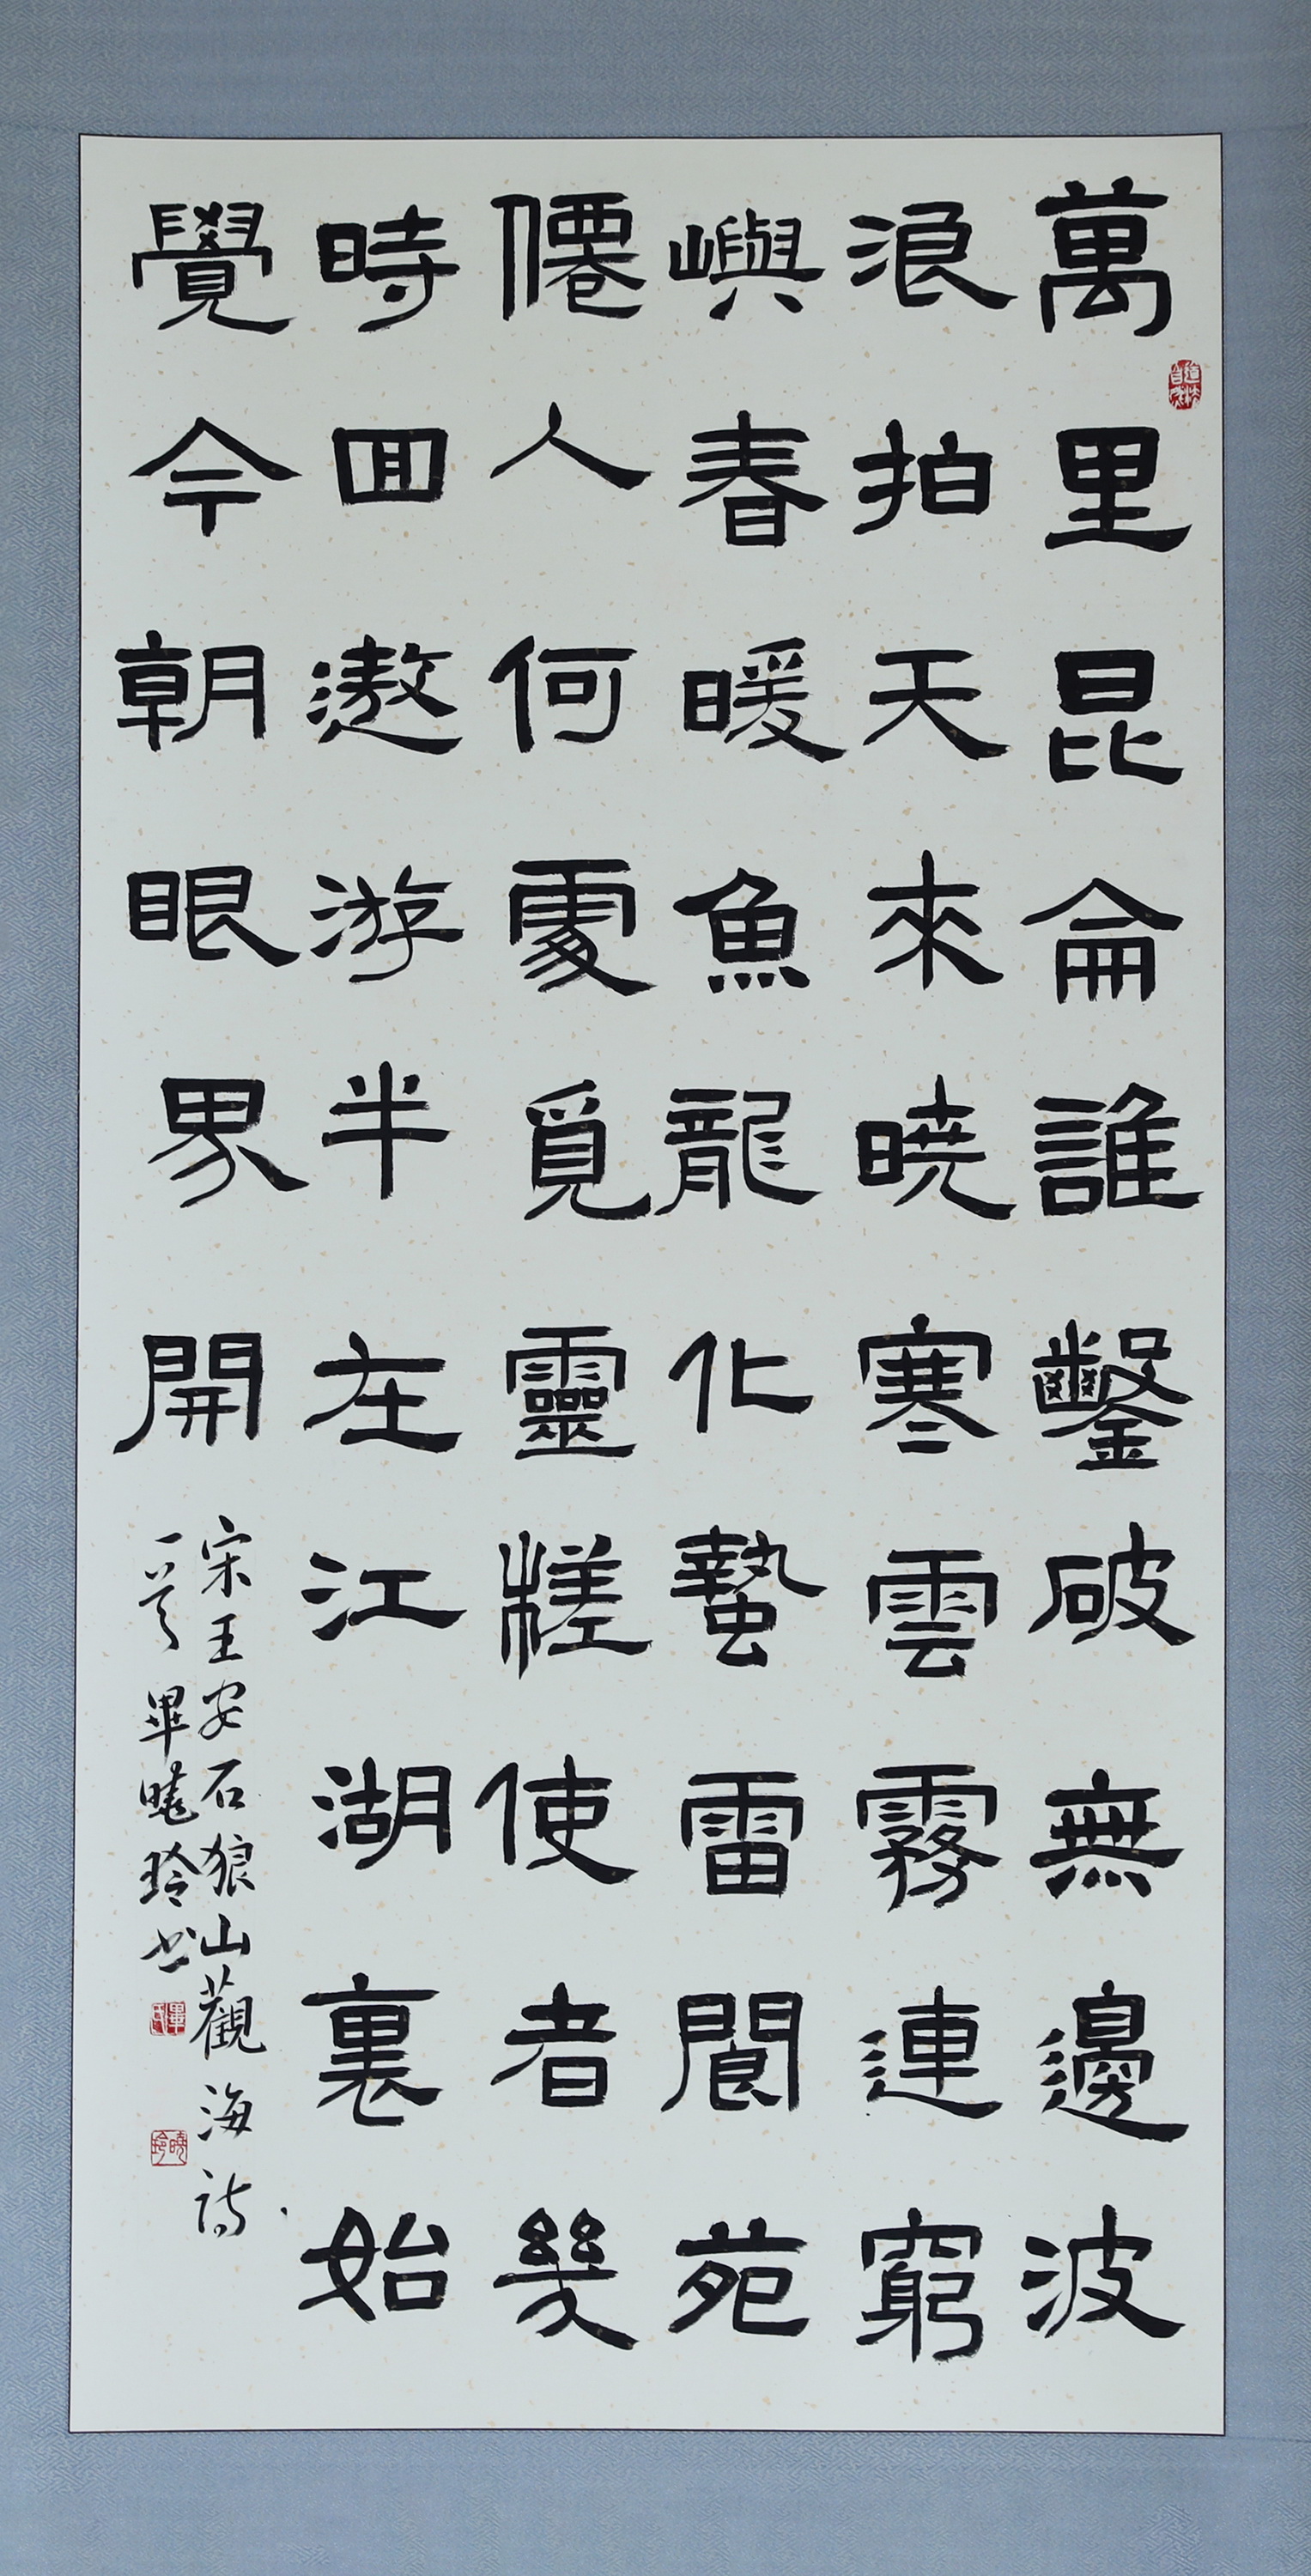 萬里昆侖誰鑿破無邊波
浪拍天來曉寒雲霧連窮
嶼春暖魚龍化蟄雷閬苑
僊人何處覓靈槎使者幾
時回遨游半在江湖裏始
覺今朝眼界開
宋王安石狼山觀海詩
一首畢曉玲书
畢氏
曉玲